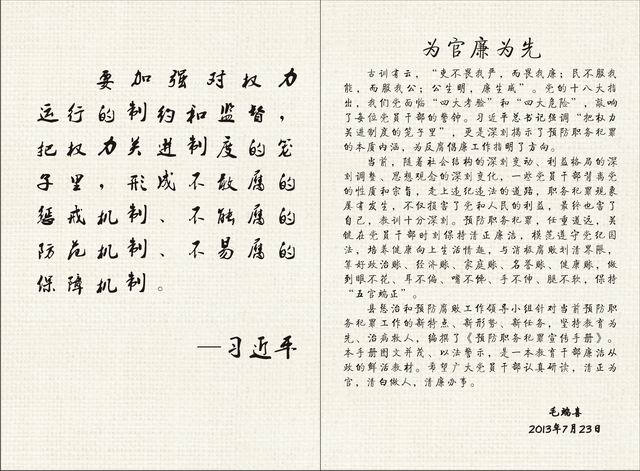 要加强对权力
运行的制约和监督，
把权力关进制度的笼
子里，形成不敢腐的
惩戒机制、不能腐的
防范机制、不易腐的
保障机制。
—习近平
为官廉为先
古训有云，“吏不畏我严，而畏我廉；民不服我
能，而服我公；公生明，廉生威”。党的十八大指
出，我们党面临“四大考验”和“四大危险”，敲响
了每位党员干部的警钟。习近平总书记强调“把权力
关进制度的笼子里”，更是深刻揭示了预防职务犯罪
的本质内涵，为反腐倡廉工作指明了方向。
当前，随着社会结构的深刻变动、利益格局的深
刻调整、思想观念的深刻变化，一些党员干部背离党
的性质和宗旨，走上违纪违法的道路，职务犯罪现象
屡有发生，不仅损害了党和人民的利益，最终也害了
自己，教训十分深刻。预防职务犯罪，任重道远，关
键在党员干部时刻保持清正廉洁，模范遵守党纪国
法，培养健康向上生活情趣，与消极腐败划清界限，
算好政治账、经济账、家庭账、名誉账、健康账，做
到眼不花、耳不偏、嘴不馋、手不伸、腿不软，保持
“五官端正”。
县惩治和预防腐败工作领导小组针对当前预防职
务犯罪工作的新特点、新形势、新任务，坚持教育为
先、治病救人，编撰了《预防职务犯罪宣传手册》。
本手册图文并茂、以法警示，是一本教育干部廉洁从
政的鲜活教材。希望广大党员干部认真研读，清正为
官，清白做人，清廉办事。
毛端喜
2013年7月23日